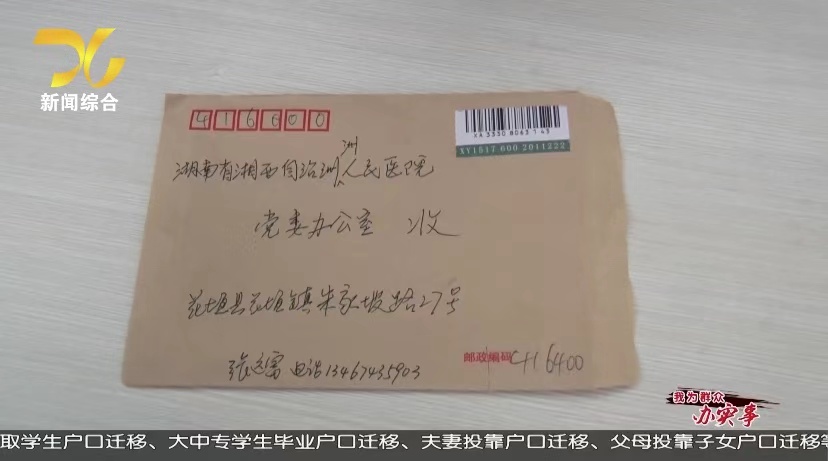 新闻综合
416000
XA 3330 8063 1 43
XY1517 600 2011222
洲
湖南省湘西自治洲人民医院
党委办公室 收
花垣县花垣镇朱家坡路27号
张 电话13467435903
邮政编码 416400
我为群众
办实事
取学生户口迁移、大中专学生毕业户口迁移、夫妻投靠户口迁移、父母投靠子女户口迁移等